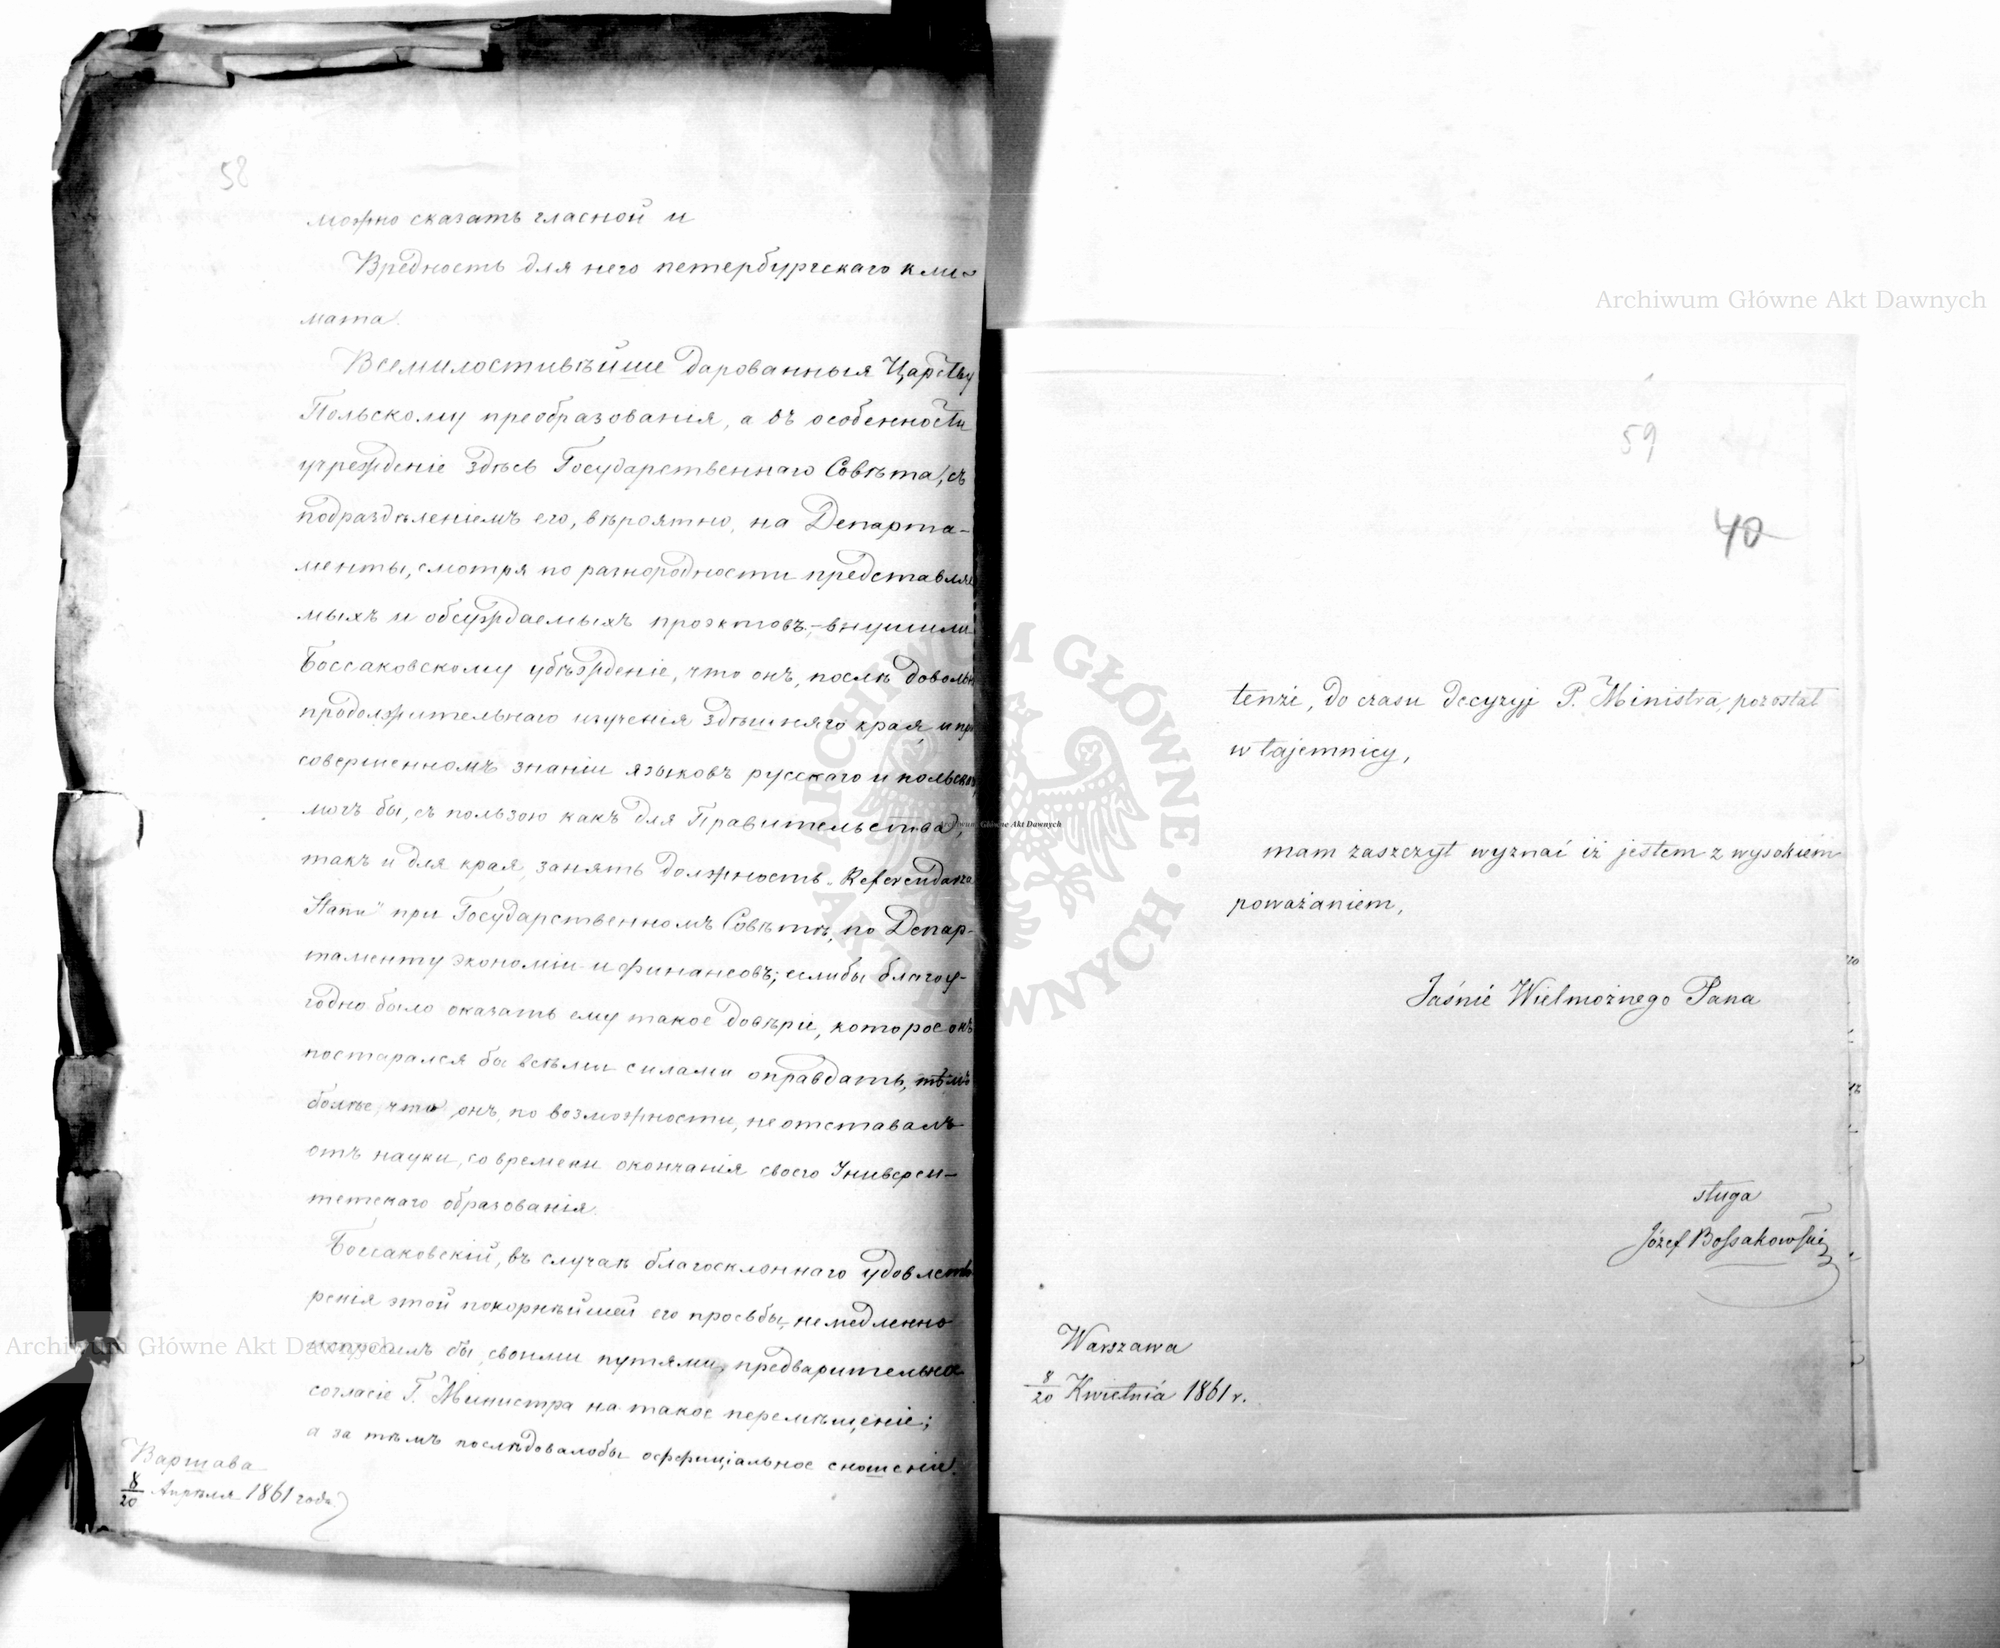 58
можно сказать гласной и
Вредность для него петербургскаго кли-
мата.
Всемилостивѣйше дарованныя Царству
Польскому преобразованія, а въ особенности
учрежденіе здѣсь Государственнаго Совѣта, съ
подраздѣленіемъ его, вѣроятно, на Департа-
менты, смотря по разнородности представляе
мыхъ и обсуждаемыхъ проэктовъ, - внушили
Боссаковскому убѣжденіе, что онъ, послѣ довольно
продолжительнаго изученія здѣшняго края, и при
совершенномъ знаніи языковъ русскаго и польскаго,
могъ бы, съ пользою какъ для Правительства,
такъ и для края, занять должность „Referendarza
Stanu" при Государственномъ Совѣтѣ, по Депар-
таменту экономіи и финансовъ; еслибы благоу-
годно было оказать ему такое довѣріе, которое онъ
постарался бы всѣми силами оправдать, тѣмъ
болѣе что онъ, по возможности, не отставалъ
отъ науки, со времени окончанія своего Универси-
тетскаго образованія.
Боссаковскій, въ случаѣ благосклоннаго удовлетво
ренія этой покорнѣйшей его просьбы, немедленно
испросилъ бы, своими путями, предварительное
согласіе Г. Министра на такое перемѣщеніе;
а за тѣмъ послѣдовалобы оффиціальное сношеніе.
Варшава
8/20 Апрѣля 1861 года.
59
40
tenże, do czasu decyzyj P. Ministra, pozostał
w tajemnicy,
mam zaszczyt wyznać iż jestem z wysokiem
poważaniem,
Jaśnie Wielmożnego Pana
sługa
Józef Bossakowski
Warszawa
8/20 Kwietnia 1861 r.
Archiwum Główne Akt Dawnych
Archiwum Główne Akt Dawnych
Archiwum Główne Akt Dawnych
ARCHIWUM GŁÓWNE AKT DAWNYCH